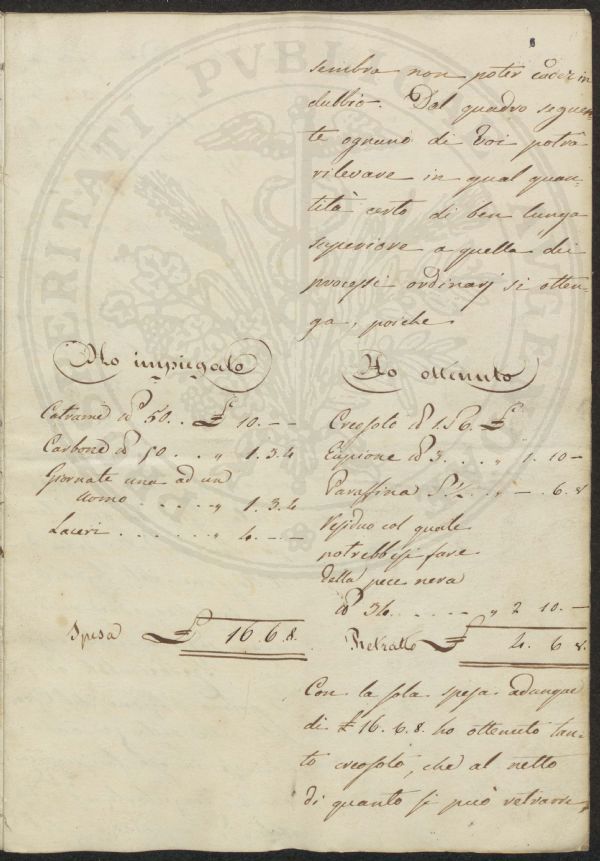 sembra non poter cader in
dubbio. Dal quadro seguen-
te ognuno di Voi potrà
rilevare in qual quan-
tità certo di ben lunga
superiore a quella dei
processi ordinarj si otten-
ga, poichè
Ho impiegato
Catrame 50. . £ 10. — —
Carbone 50 . . „ 1. 3. 4
Giornate una ad un
uomo . . . . . „ 1. 3. 4
Laceri . . . . . . „ 4. — —
Spesa £ 16 6. 8.
Ho ottenuto
Creosoto 1. 6. £
Eupione 3. . . „ 1. 10 —
Paraffina . . „ — . 6. 8
Residuo col quale
potrebbesi fare
della pece nera
34. . . . . . „ 2 10. —
Retratto £ 4. 6 8.
Con la sola spesa adunque
di £ 16. 6. 8. ho ottenuto tan-
to creosoto, che al netto
di quanto si può retrarre